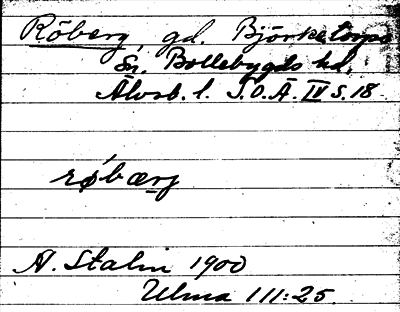 Röberg, gd. Björketorps
Sn. Bollebygds hd.
Älvsb. l. S.O.Ä. IV s. 18
røbærg
A. Stalin 1900
Ulma 111:25.